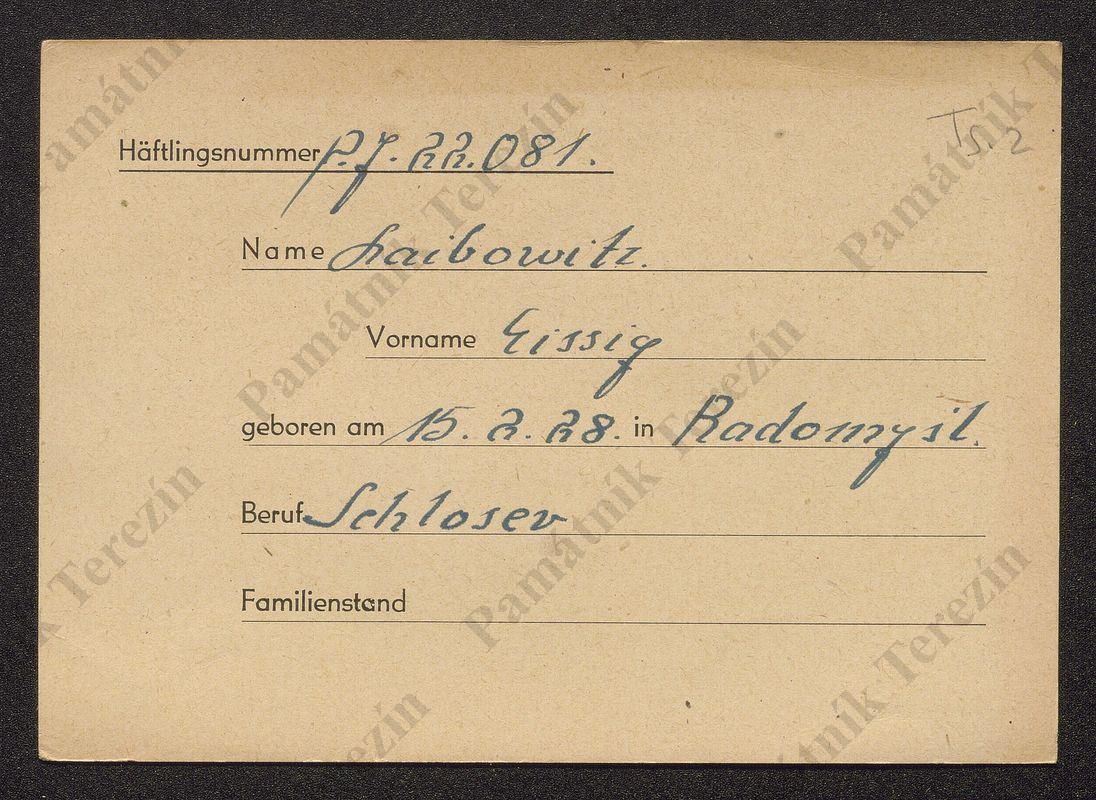 T
S. 2
Häftlingsnummer P.J. 22.081.
Name Laibowitz.
Vorname Eissig
geboren am 15. 2. 28. in Radomysl.
Beruf Schloser
Familienstand
Památník Terezín